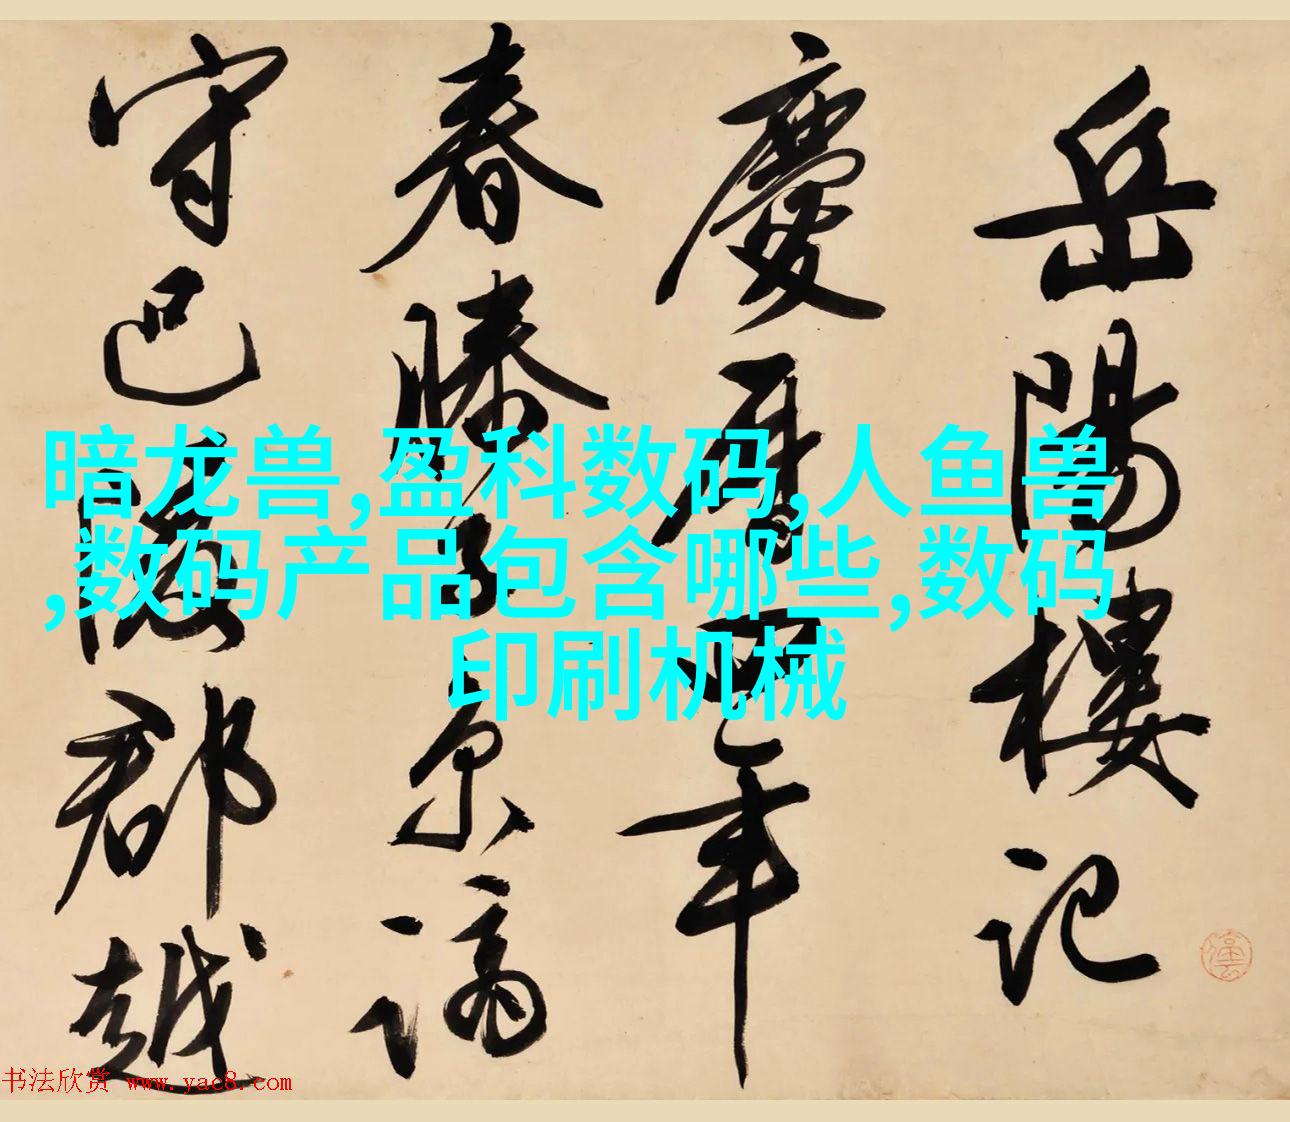 岳陽樓記
慶曆四年
春滕子京謫
守巴陵郡越
暗龙兽,盈科数码,人鱼兽
,数码产品包含哪些,数码
印刷机械
书法欣赏 www.yac8.com